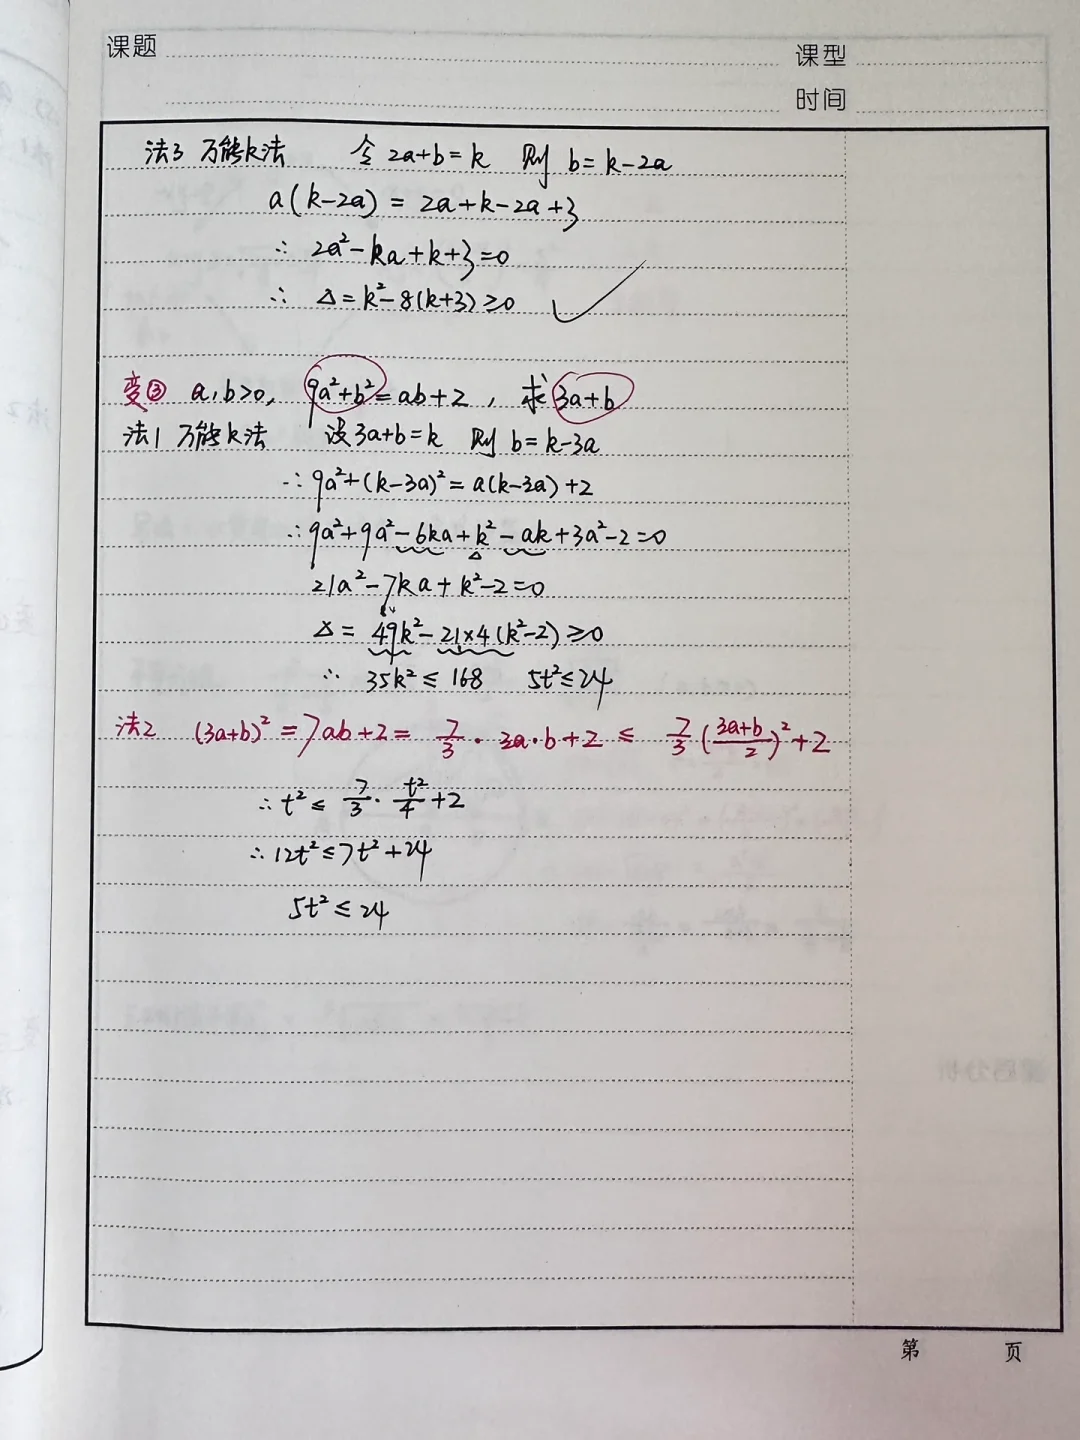 课题
课型
时间
法3 万能k法 令 2a+b=k 则 b=k-2a
a(k-2a) = 2a+k-2a+3
∴ 2a²-ka+k+3=0
∴ Δ=k²-8(k+3)≥0
变③ a,b>0, 9a²+b²=ab+2, 求 3a+b
法1 万能k法 设3a+b=k 则 b=k-3a
∴ 9a²+(k-3a)²=a(k-3a)+2
∴ 9a²+9a²-6ka+k²-ak+3a²-2=0
21a²-7ka+k²-2=0
Δ= 49k²-21×4(k²-2)≥0
∴ 35k²≤168 5t²≤24
法2 (3a+b)²=7ab+2= 7/3·3a·b+2 ≤ 7/3(3a+b/2)²+2
∴ t²≤ 7/3·t²/4+2
∴ 12t²≤7t²+24
5t²≤24
第 页